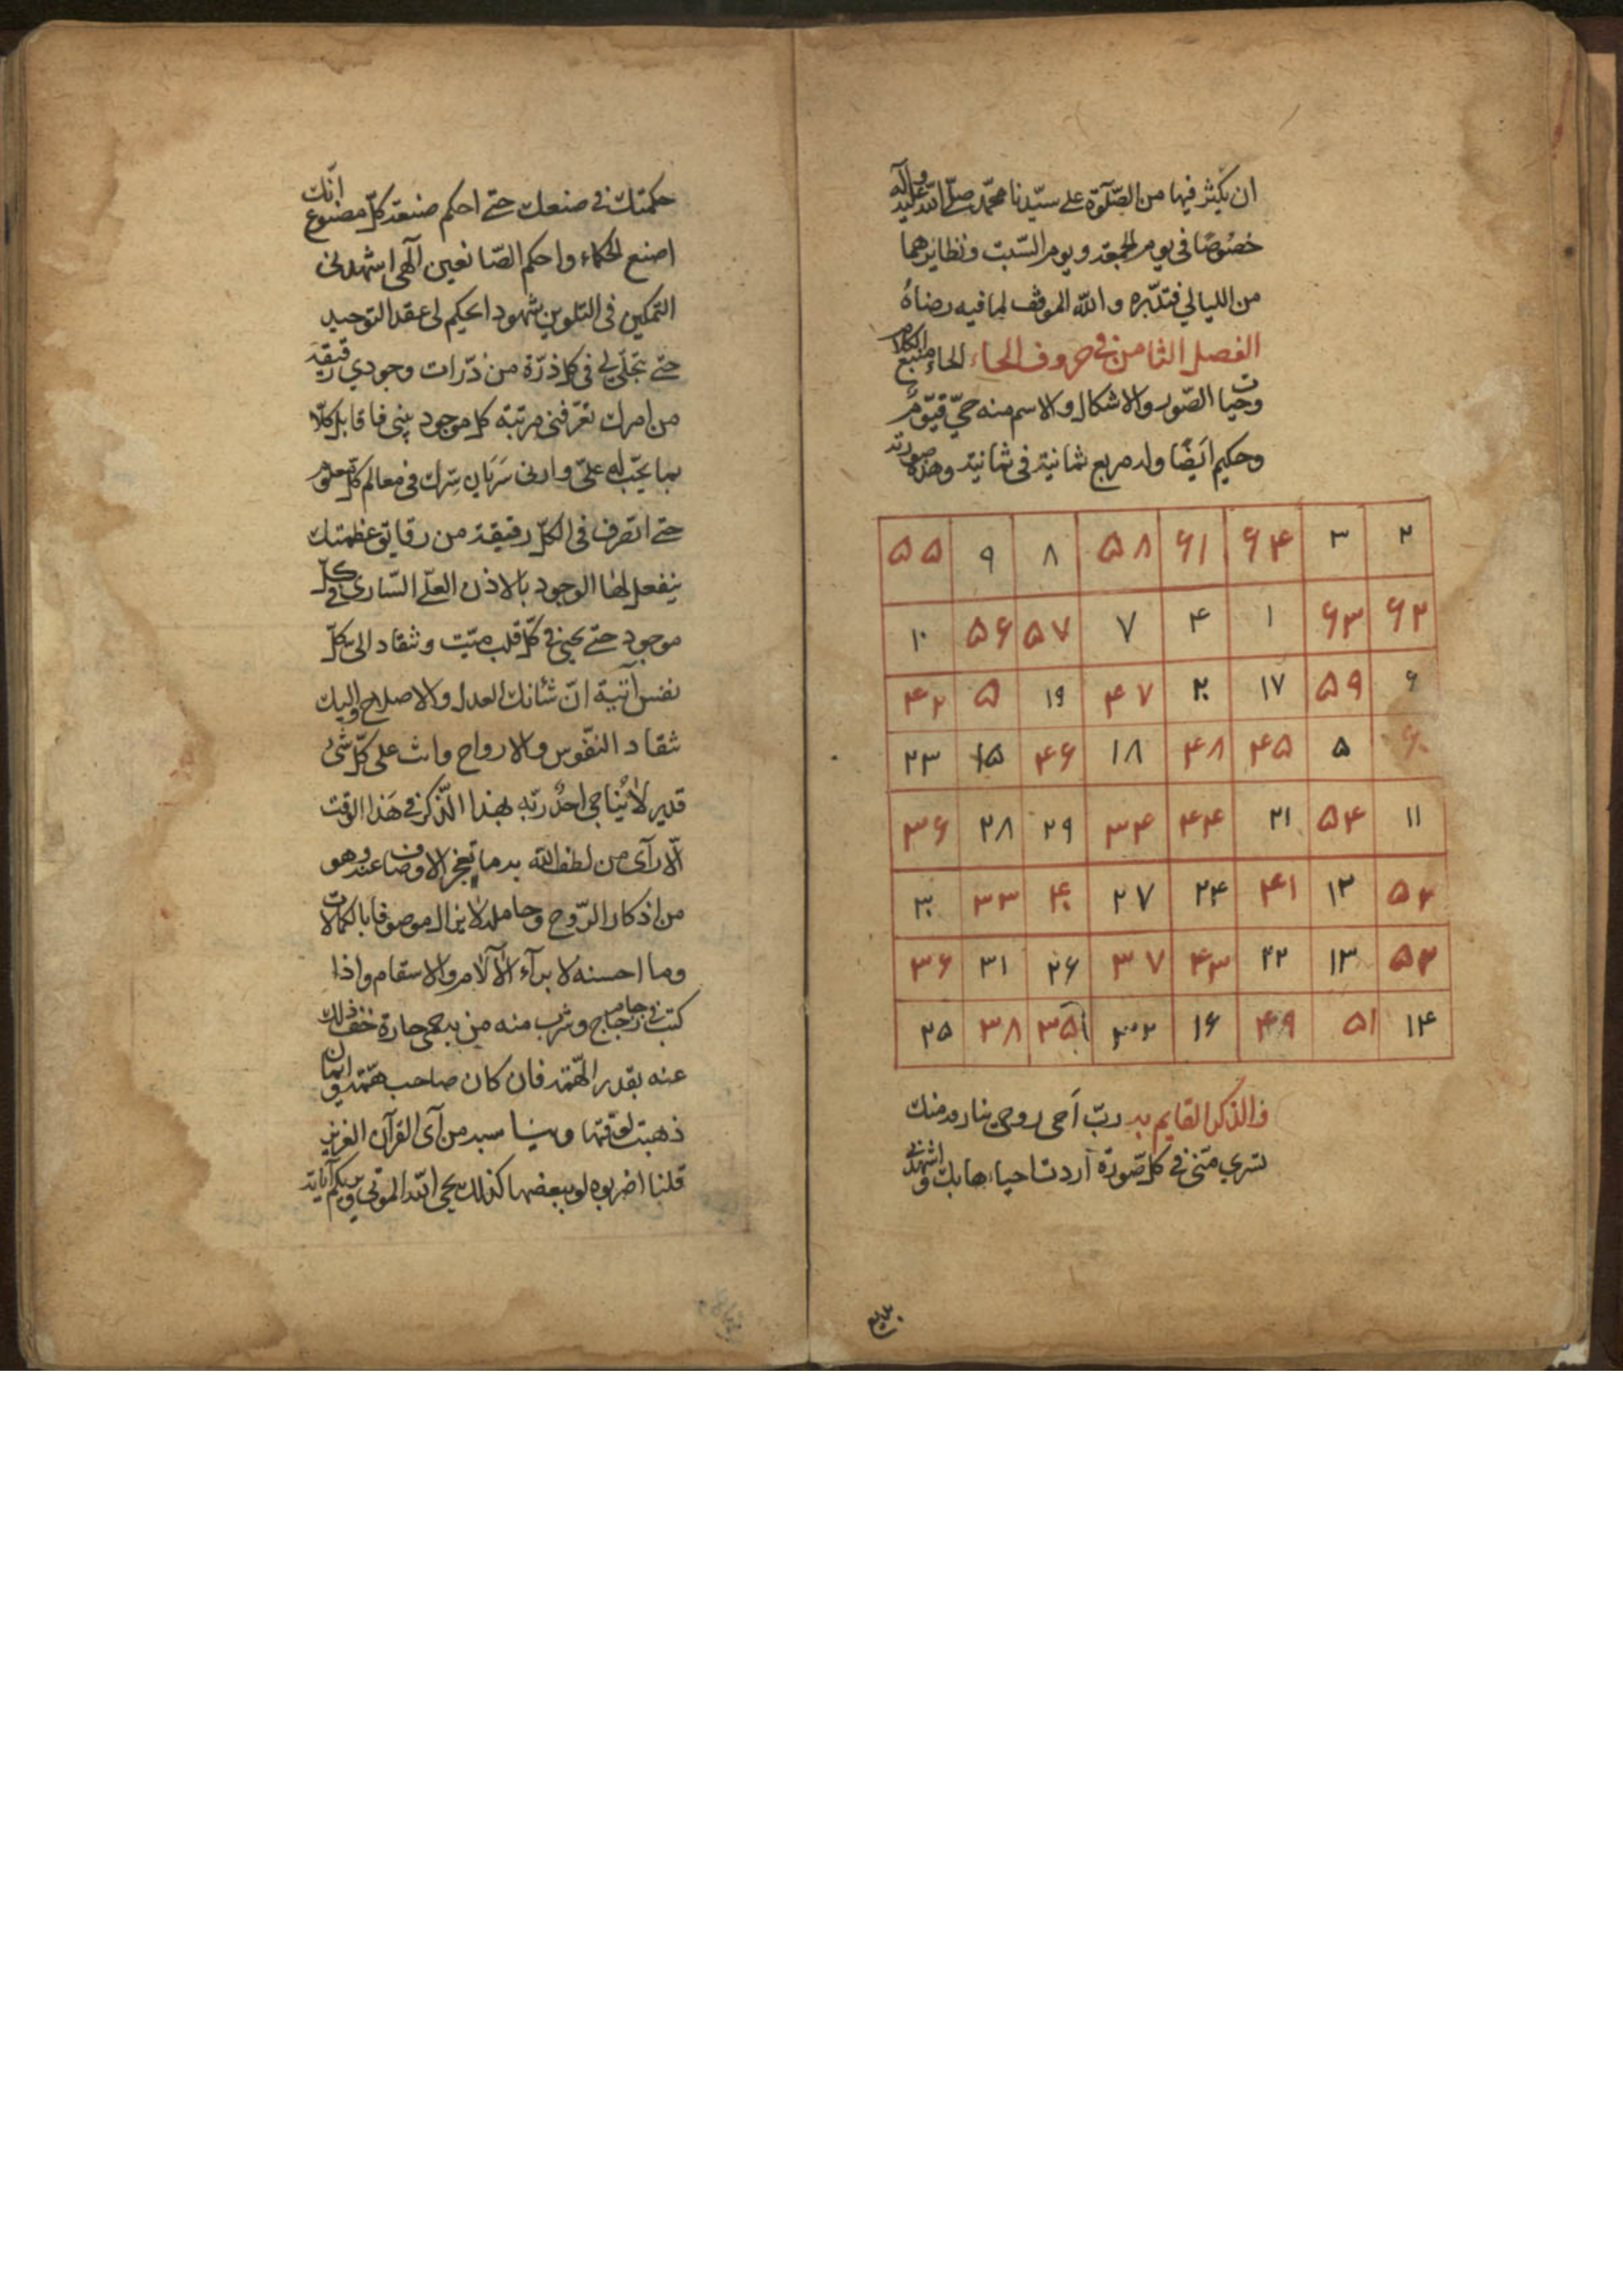 ان يكثر فيها من الصّلوة على سيّدنا محمّد صلّى الله عليه وآله
خصوصًا في يوم الجمعة ويوم السّبت ونظايرهما
من الليالي فتدبّره والله الموفق لما فيه رضاه
الفصل الثامن في حروف الحاء الحاء منبع الكلام
وحيات الصّور والاشكال والاسم منه حيّ قيّوم
وحكيم ايضًا وله مربع ثمانية في ثمانية وهذه صورته
۲ ۳ ۶۴ ۶۱ ۵۸ ۸ ۹ ۵۵
۶۲ ۶۳ ۱ ۴ ۷ ۵۷ ۵۶ ۱۰
۶ ۵۹ ۱۷ ۲۰ ۴۷ ۱۹ ۵ ۴۲
۶۰ ۵ ۴۵ ۴۸ ۱۸ ۴۶ ۱۵ ۲۳
۱۱ ۵۴ ۲۱ ۴۴ ۳۴ ۲۹ ۲۸ ۳۶
۵۲ ۱۲ ۴۱ ۲۴ ۲۷ ۴۰ ۳۳ ۳۰
۵۲ ۱۳ ۲۲ ۴۳ ۳۷ ۲۶ ۳۱ ۳۶
۱۴ ۵۱ ۴۹ ۱۶ ۳۵ ۳۸ ۲۵
والذكر القايم به ربّ احي روحي منك
تسري منّي في كل صورة اردت احياءها بك واشهدني
حكمتك في صنعك حتى احكم صنعة كلّ مصنوع انّك
اصنع الحكماء واحكم الصّانعين الهي اشهدني
التمكين في التلوين بشهود احكيم لي عقد التوحيد
حتى تتجلّى لي في كل ذرّة من ذرّات وجودي رقيقة
من امرك تعرّفني مرتبة كل موجود فاقابل كلّا
بما يجب له عليّ وارني سَرَيان سرّك في معالم كل معلوم
حتى اتصرف في الكلّ رقيقة من رقايق عظمتك
ينفعل لها الوجود بالاذن العليّ السّاري في كلّ
موجود حتى يحيى في كلّ قلب ميّت وتنقاد اليّ كلّ
نفس آبية انّ شأنك العدل والاصلاح واليك
تنقاد النفوس والارواح وانت على كلّ شئ
قدير لا يناجي احدٌ ربّه بهذا الذّكر في هذا الوقت
الّا رآى من لطف الله به ما تعجز الاوصاف عنه وهو
من اذكار الرّوح وحامله لا يزال موصوفا بالكمالات
وما احسنه لابراء الآلام والاسقام واذا
كتب في جام زجاج وشرب منه من به حمى حارة خفف ذلك
عنه بقدر الهمّة فان كان صاحب همّة وايمان
ذهبت لوقتها من آي القرآن العزيز
قلنا اضربوه ببعضها كذلك يحيي الله الموتى ويريكم آياته